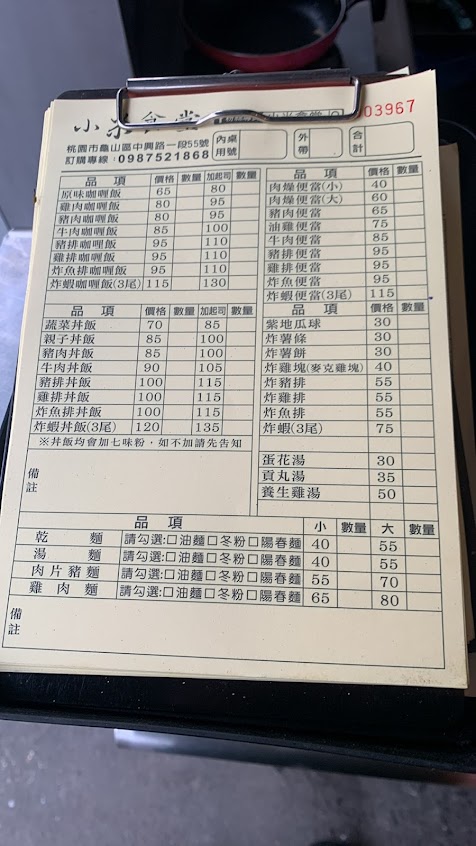 小米食堂
小米食堂
03967
桃園市龜山區中興路一段55號
訂購專線：0987521868
內用 桌號
外帶
合計
品項 價格 數量 加起司 數量
原味咖喱飯 65 80
雞肉咖喱飯 80 95
豬肉咖喱飯 80 95
牛肉咖喱飯 85 100
豬排咖喱飯 95 110
雞排咖喱飯 95 110
炸魚排咖喱飯 95 110
炸蝦咖喱飯(3尾) 115 130
品項 價格 數量
肉燥便當(小) 40
肉燥便當(大) 60
豬肉便當 65
油雞便當 75
牛肉便當 85
豬排便當 95
雞排便當 95
炸魚便當 95
炸蝦便當(3尾) 115
品項 價格 數量 加起司 數量
蔬菜丼飯 70 85
親子丼飯 85 100
豬肉丼飯 85 100
牛肉丼飯 90 105
豬排丼飯 100 115
雞排丼飯 100 115
炸魚排丼飯 100 115
炸蝦丼飯(3尾) 120 135
※丼飯均會加七味粉，如不加請先告知
備註
品項 價格 數量
紫地瓜球 30
炸薯條 30
炸薯餅 30
炸雞塊(麥克雞塊) 40
炸豬排 55
炸雞排 55
炸魚排 55
炸蝦(3尾) 75
蛋花湯 30
貢丸湯 35
養生雞湯 50
品項 小 數量 大 數量
乾麵 請勾選:□油麵□冬粉□陽春麵 40 55
湯麵 請勾選:□油麵□冬粉□陽春麵 40 55
肉片豬麵 請勾選:□油麵□冬粉□陽春麵 55 70
雞肉麵 請勾選:□油麵□冬粉□陽春麵 65 80
備註